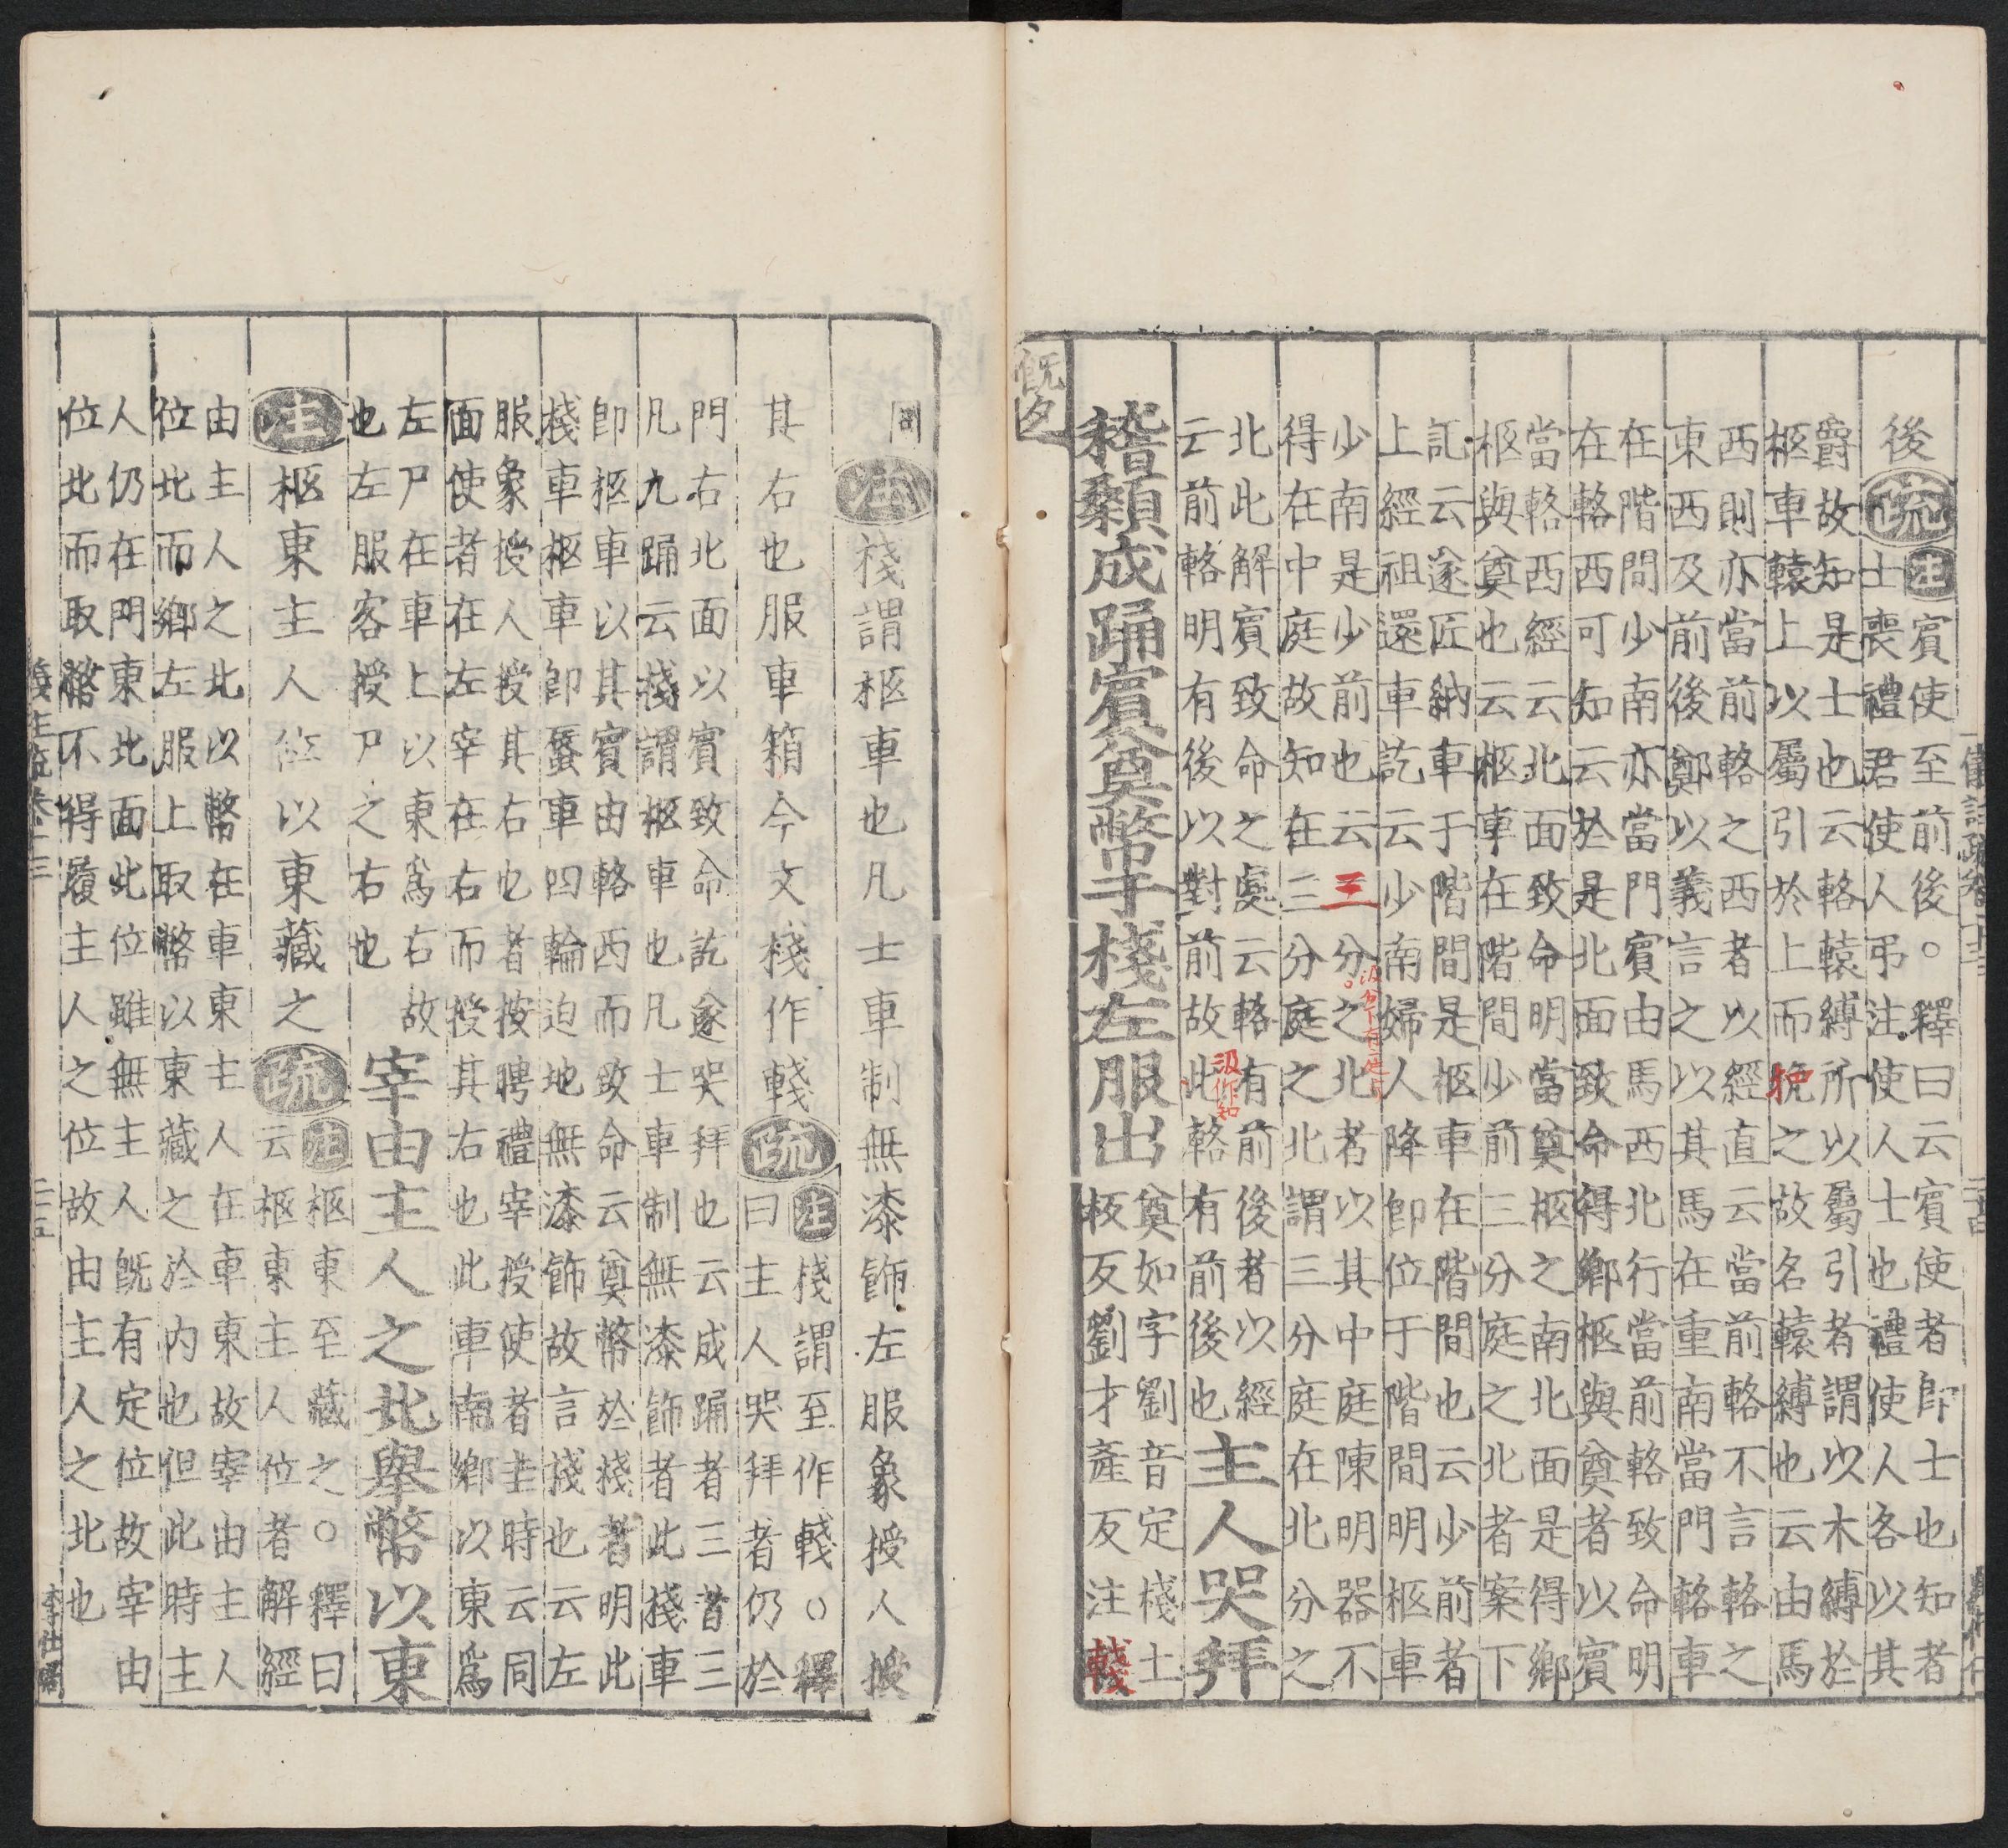 後
疏
注賓使至前後○釋曰云賓使者即士也知者
士喪禮君使人弔注使人士也禮使人各以其
爵故知是士也云輅轅縛所以屬引者謂以木縛於
柩車轅上以屬引於上而挽之故名轅縛也云由馬
西則亦當前輅之西者以經直云當前輅不言輅之
東西及前後鄭以義言之以其馬在重南當門輅車
在階間少南亦當門賓由馬西北行當前輅致命明
在輅西可知云於是北面致命得鄉柩與奠者以賓
當輅西經云北面致命明當奠柩之南北面是得鄉
柩與奠也云柩車在階間少前三分庭之北者案下
記云遂匠納車于階間是柩車在階間也云少前者
上經祖還車訖云少南婦人降即位于階間明柩車
少南是少前也云三分之北者以其中庭陳明器不
得在中庭故知在三分庭之北謂三分庭在北分之
北此解賓致命之處云輅有前後者以經
云前輅明有後以對前故此輅有前後也
汲分下有之庭
汲作知
主人哭拜
稽顙成踊賓奠幣于棧左服出
奠如字劉音定棧士
板反劉才產反注輚
既夕
同
注
棧謂柩車也凡士車制無漆飾左服象授人授
其右也服車箱今文棧作輚
疏
注棧謂至作輚○釋
曰主人哭拜者仍於
門右北面以賓致命訖遂哭拜也云成踊者三者三
凡九踊云棧謂柩車也凡士車制無漆飾者此棧車
即柩車以其賓由輅西而致命云奠幣於棧者明此
棧車柩車即蜃車四輪迫地無漆飾故言棧也云左
服象授人授其右也者按聘禮宰授使者圭時云同
面使者在左宰在右而授其右也此車南鄉以東爲
左尸在車上以東爲右故
也左服客授尸之右也
宰由主人之北舉幣以東
注
柩東主人位以東藏之
疏
注柩東至藏之○釋曰
云柩東主人位者解經
由主人之北以幣在車東主人在車東故宰由主人
位北而鄉左服上取幣以東藏之於內也但此時主
人仍在門東北面此位雖無主人既有定位故宰由
位北而取幣不得履主人之位故由主人之北也